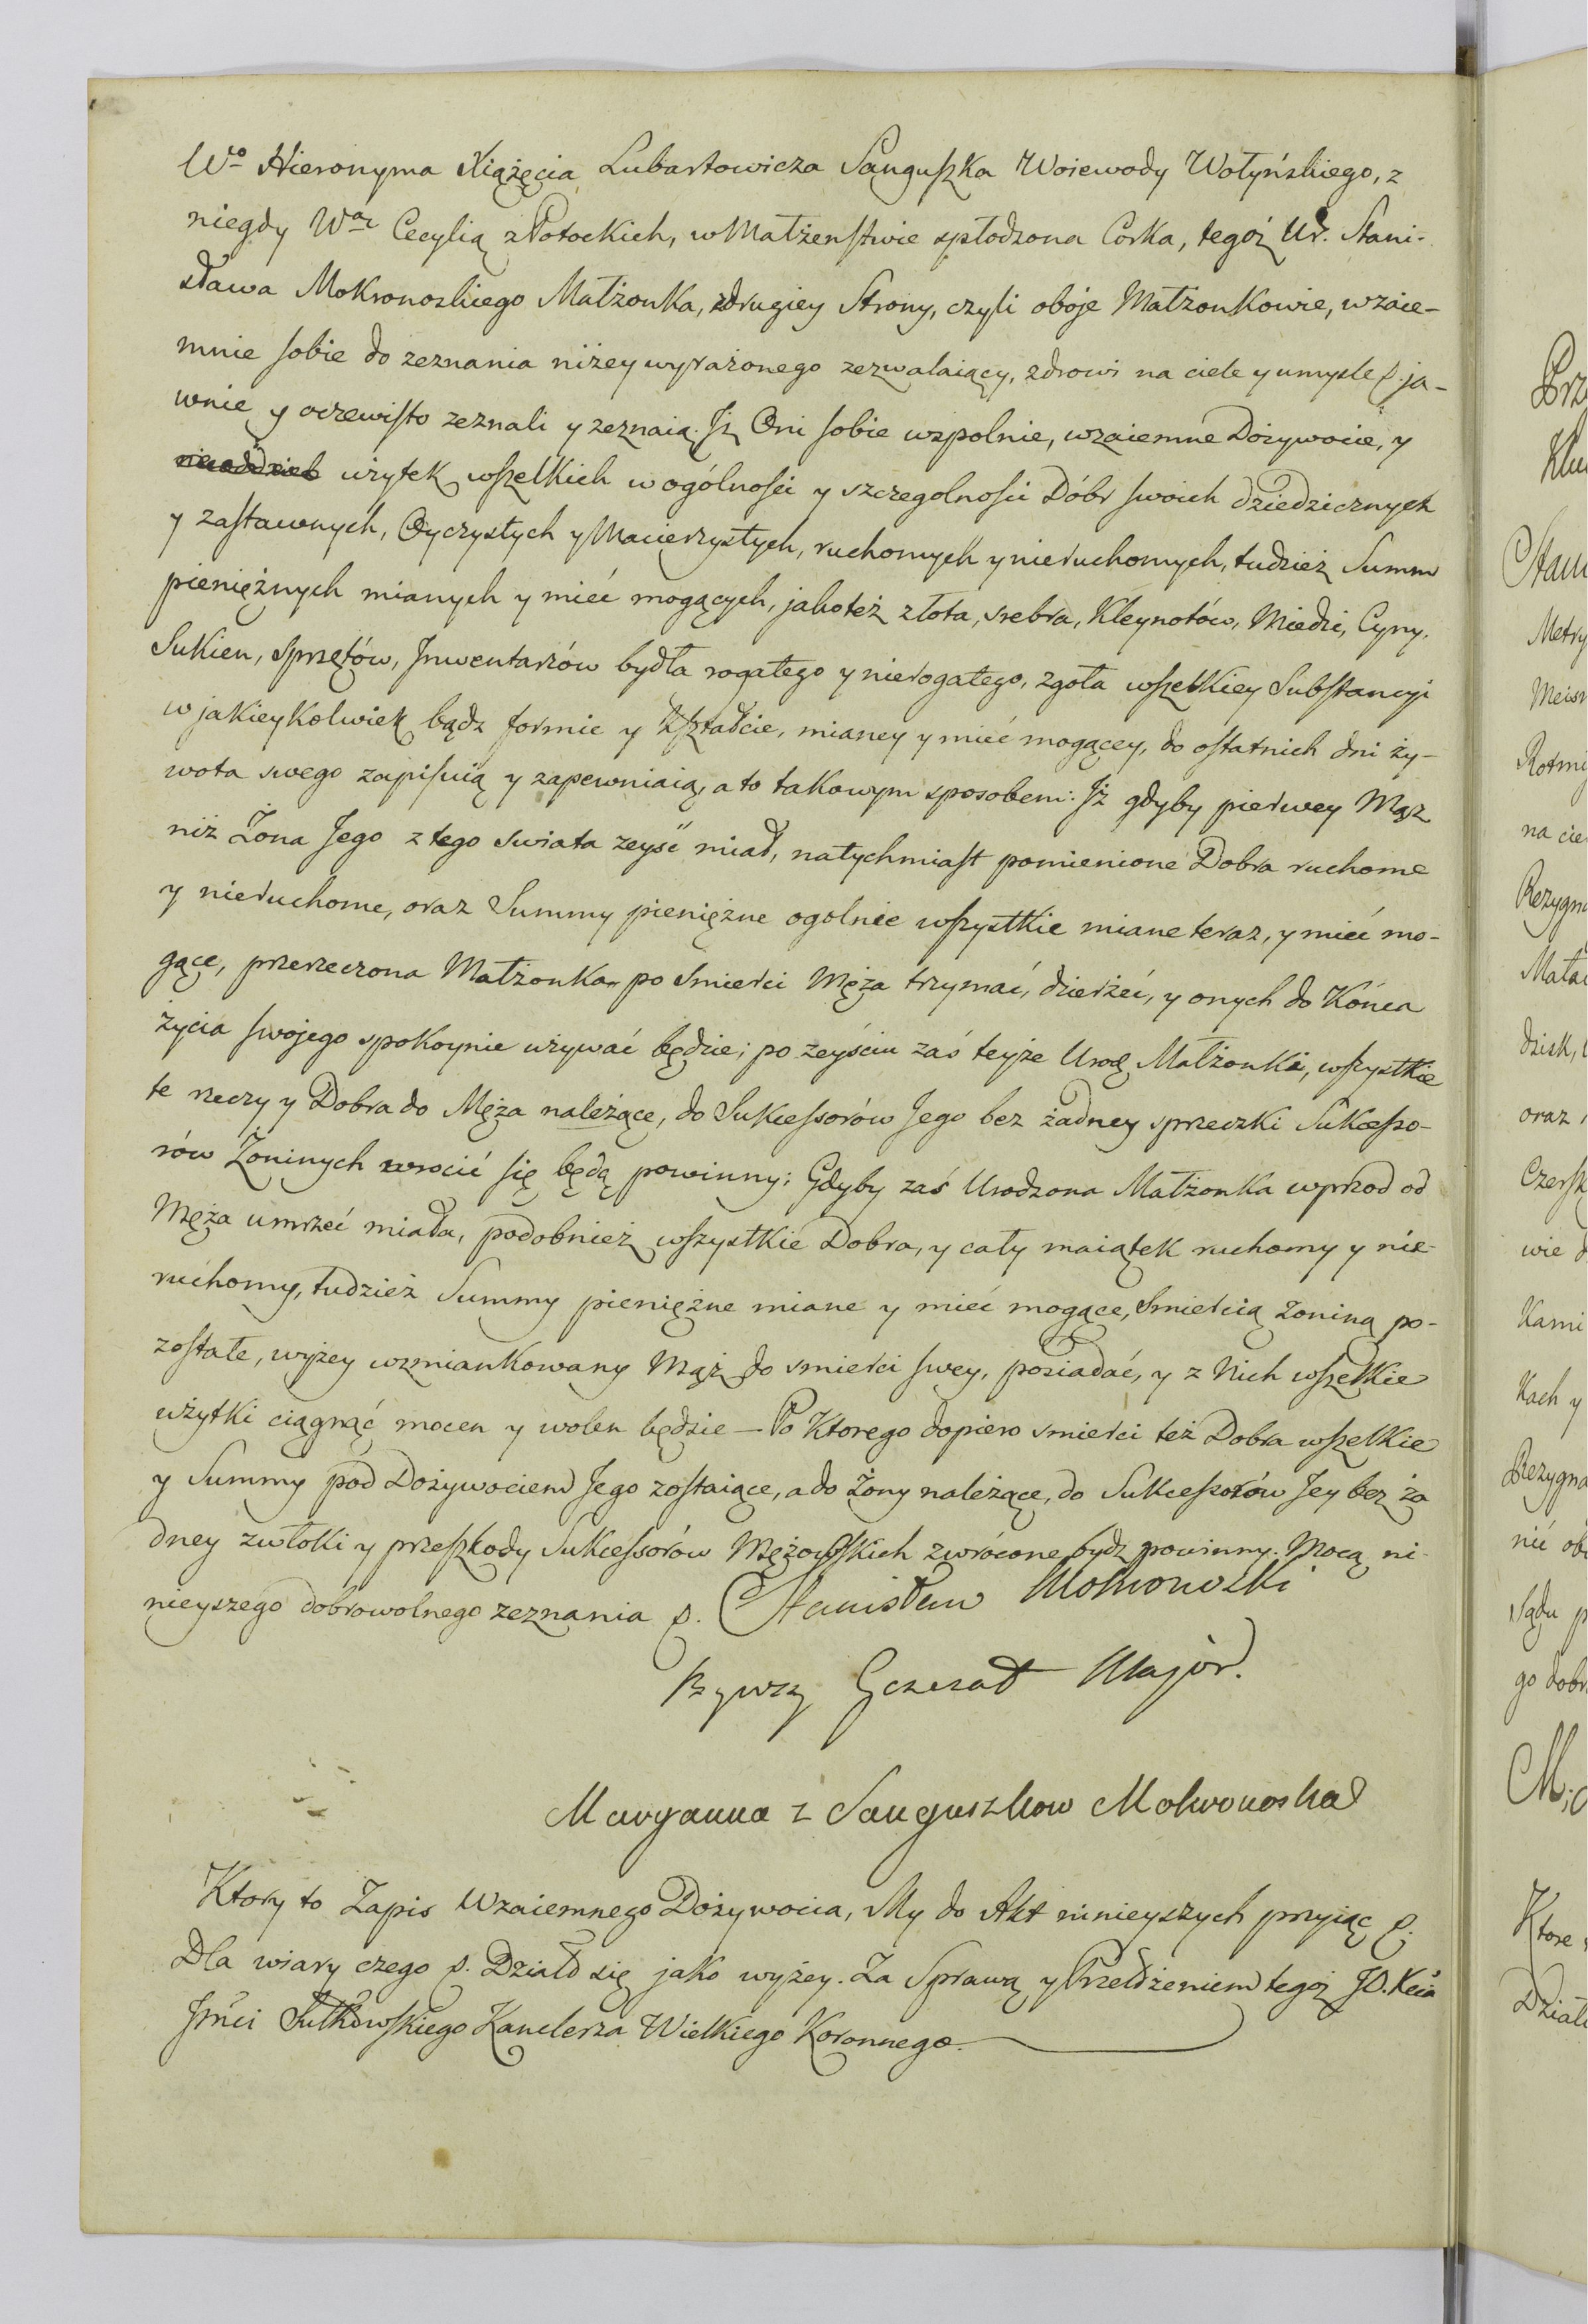 Wo Hieronyma Xiążęcia Lubartowicza Sanguszka Woiewody Wołyńskiego, z
niegdy War Cecylią z Potockich, w Małżenstwie spłodzona Corka, tegoż Ur. Stani-
sława Mokronoskiego Małżonka, z drugiey Strony, czyli oboje Małżonkowie, wzaie-
mnie sobie do zeznania niżey wyrażonego zezwalaiący, zdrowi na ciele y umysle p. ja-
wnie y oczewisto zeznali y zeznaią. Jż Oni sobie wspolnie, wzaiemne Dożywocie, y
użytek wszelkich w ogólności y szczegolności Dóbr swoich dziedzicznych
y zastawnych, Oyczystych y Macierzystych, ruchomych y nieruchomych, tudzież Summ
pieniężnych mianych y mieć mogących, jakoteż złota, srebra, Kleynotów, Miedzi, Cyny.
Sukien, Sprzętów, Jnwentarzów bydła rogatego y nierogatego, zgoła wszelkiey Substancyi
w jakieykolwiek bądz formie y Kształcie, mianey y mieć mogącey, do ostatnich dni ży-
wota swego zapisuią y zapewniaią, a to takowym sposobem: Jż gdyby pierwey Mąż
niż Żona Jego z tego swiata zeyść miał, natychmiast pomienione Dobra ruchome
y nieruchome, oraz Summy pieniężne ogolnie wszystkie miane teraz, y mieć mo-
gące, przerzeczona Małżonka po Smierci Męża trzymać, dzierżeć, y onych do Końca
życia swojego spokoynie używać będzie; po zeyściu zaś teyże Urod. Małżonki, wszystkie
te rzeczy y Dobra do Męża należące, do Sukcessorów Jego bez żadney sprzeczki Sukcesso-
rów Żoninych wrocić się będą powinny; Gdyby zaś Urodzona Małżonka wprzod od
Męża umrzeć miała, podobnież wszystkie Dobra, y cały maiątek ruchomy y nie-
ruchomy, tudzież Summy pieniężne miane y mieć mogące, Smiercią Żoniną po-
zostałe, wyżey wzmiankowany Mąż do smierci swey, posiadać, y z Nich wszelkie
użytki ciągnąć mocen y wolen będzie – Po Ktorego dopiero smierci też Dobra wszelkie
y Summy pod Dożywociem Jego zostaiące, a do Żony należące, do Sukcessorów Jey bez ża
dney zwłoki y przeszkody Sukcessorów Mężowskich zwrócone bydz powinny. Mocą ni-
nieyszego dobrowolnego zeznania p. Stanisław Mokronoski
Bywszy Generał Major.
Maryanna z Sanguszkow Mokronoska
Ktory to Zapis Wzaiemnego Dożywocia, My do Akt ninieyszych przyiąc p.
Dla wiary czego p. Działo się jako wyżey. Za Sprawą y Przełożeniem tegoż JO. Xcia
Jmci Sułkowskiego Kanclerza Wielkiego Koronnego.